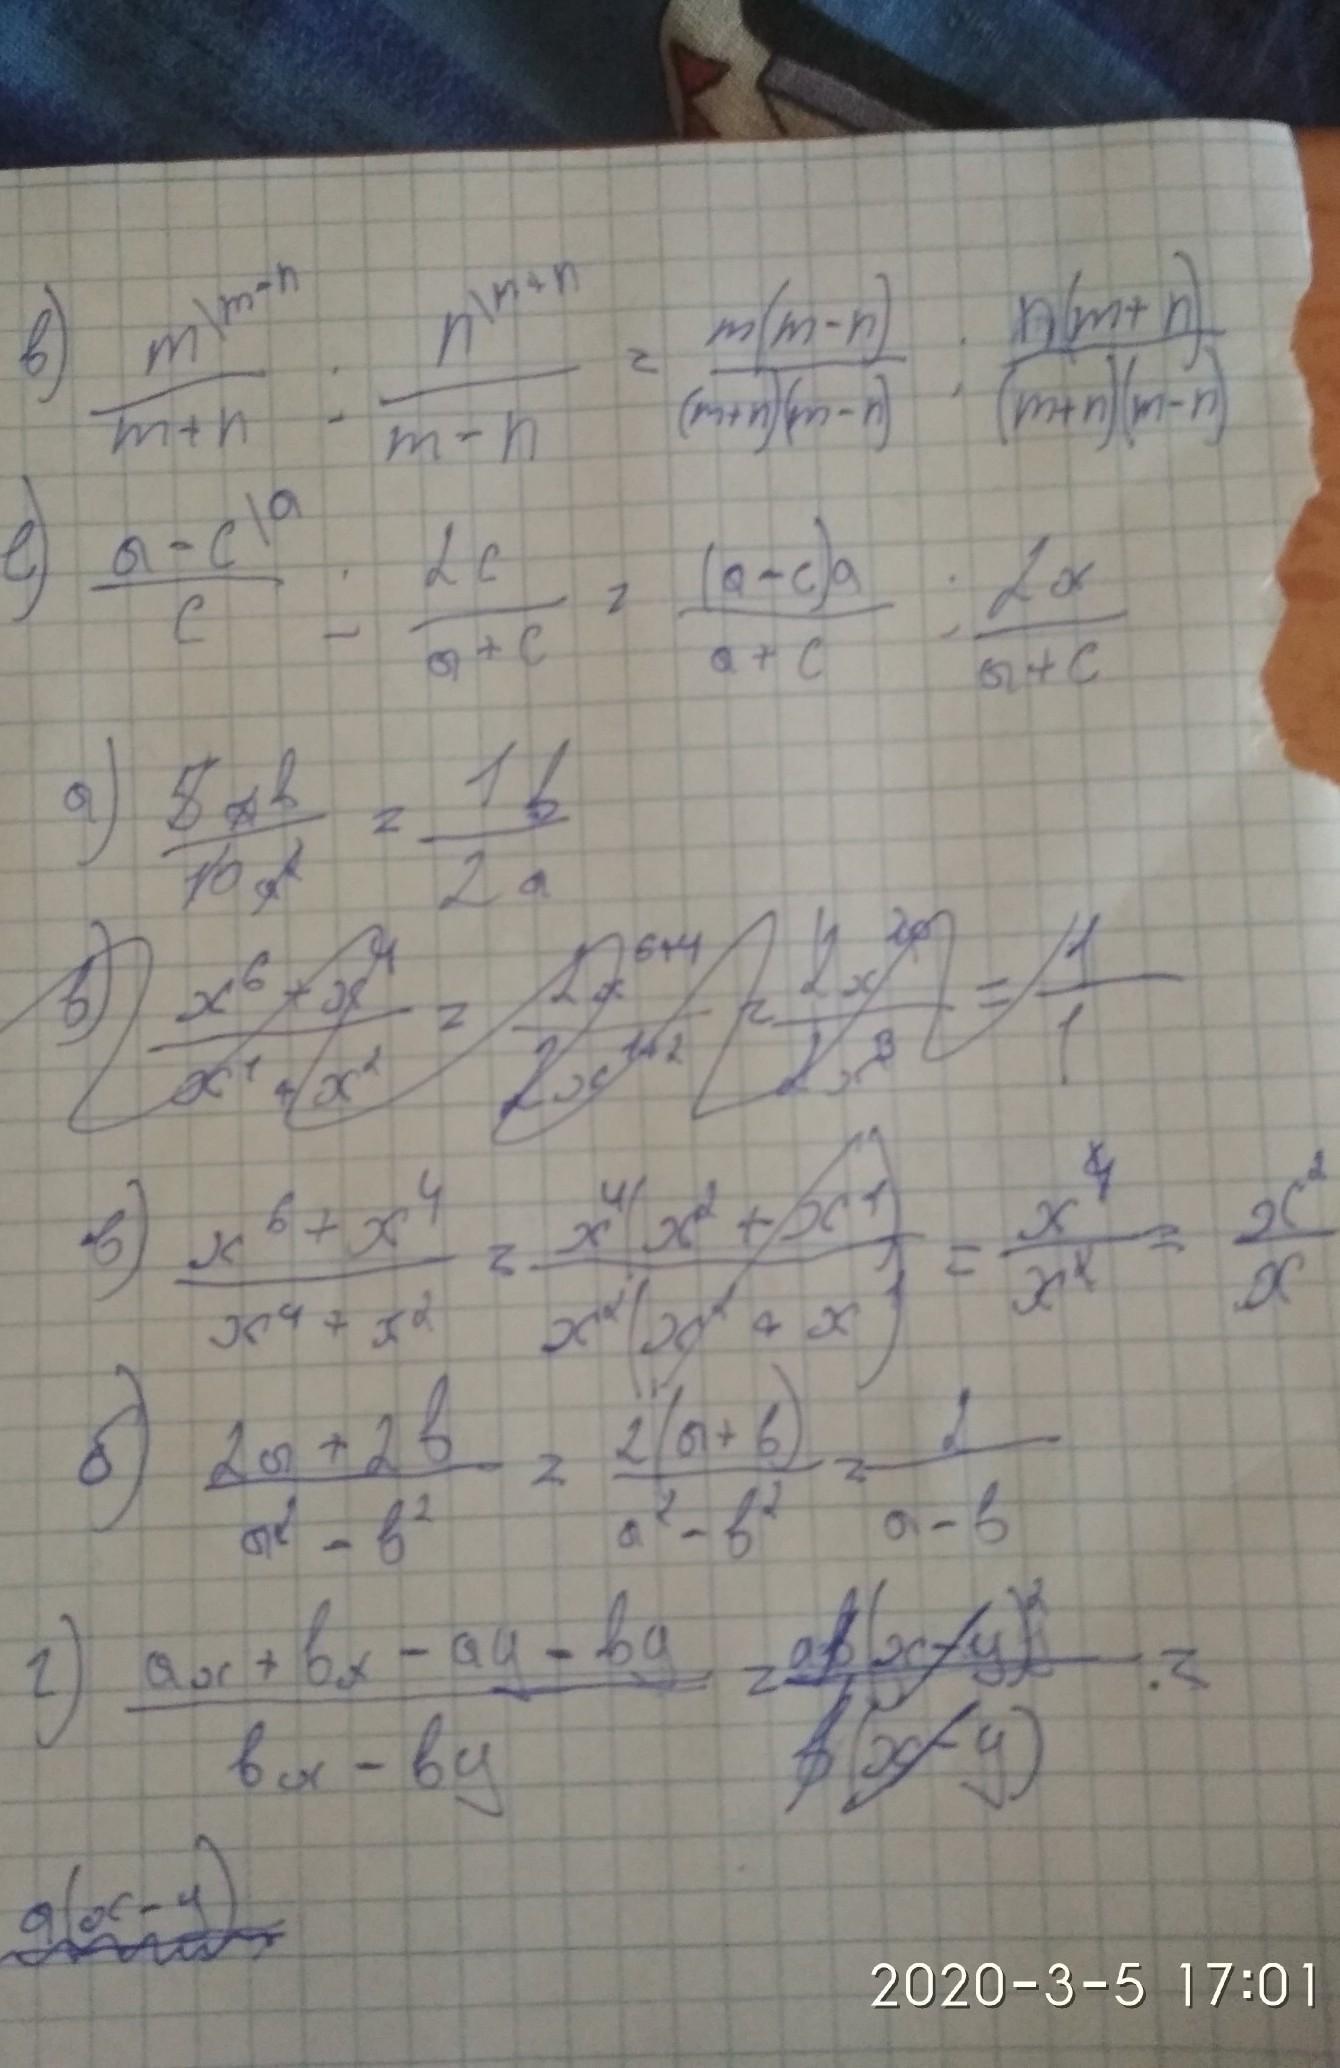 в) m\m-n / m+n ; n\m+n / m-n = m(m-n) / (m+n)(m-n) ; n(m+n) / (m+n)(m-n)
е) a-c\a / c ; 2c / a+c = (a-c)a / a+c ; 2x / a+c
а) 5ab / 10a² = 1b / 2a
в) x⁶+x⁴ / x⁴+x² = 2x⁶⁺⁴ / 2x¹⁺² = = 1 / 1
в) x⁶+x⁴ / x⁴+x² = x⁴(x²+x¹) / x²(x²+x) = x⁴ / x² = x² / x
б) 2a+2b / a²-b² = 2(a+b) / a²-b² = 2 / a-b
г) ax+bx-ay-by / bx-by = ab(x-y)² / b(x-y) =
a(x-y)
2020-3-5 17:01